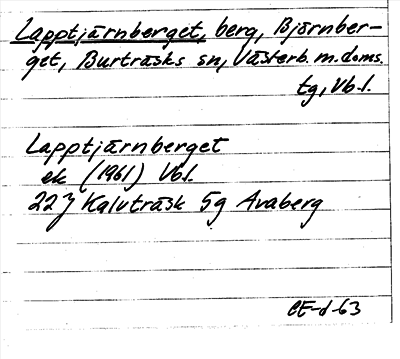 Lapptjärnberget, berg, Björnber-
get, Burträsks sn, Västerb. m. doms.
tg, Vb.l.
Lapptjärnberget
ek (1961) Vb.l.
22J Kalvträsk 5g Avaberg
CE-d-63